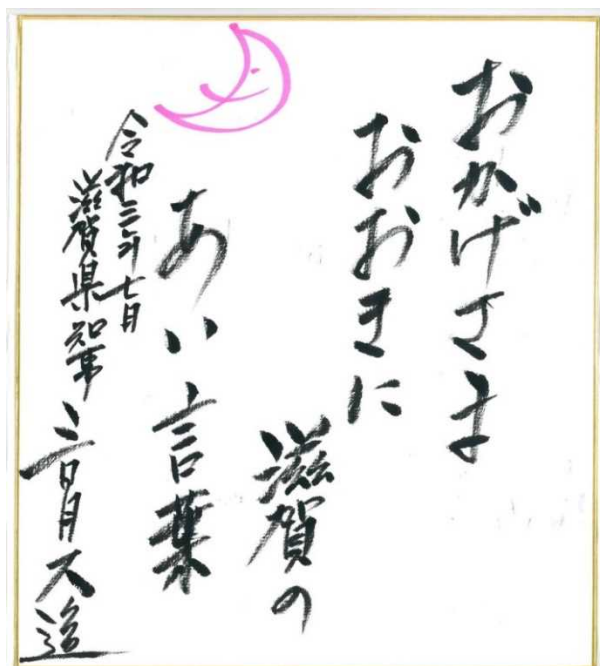 おかげさま
おおきに
滋賀の
あい言葉
令和三年七月
滋賀県知事
三日月大造